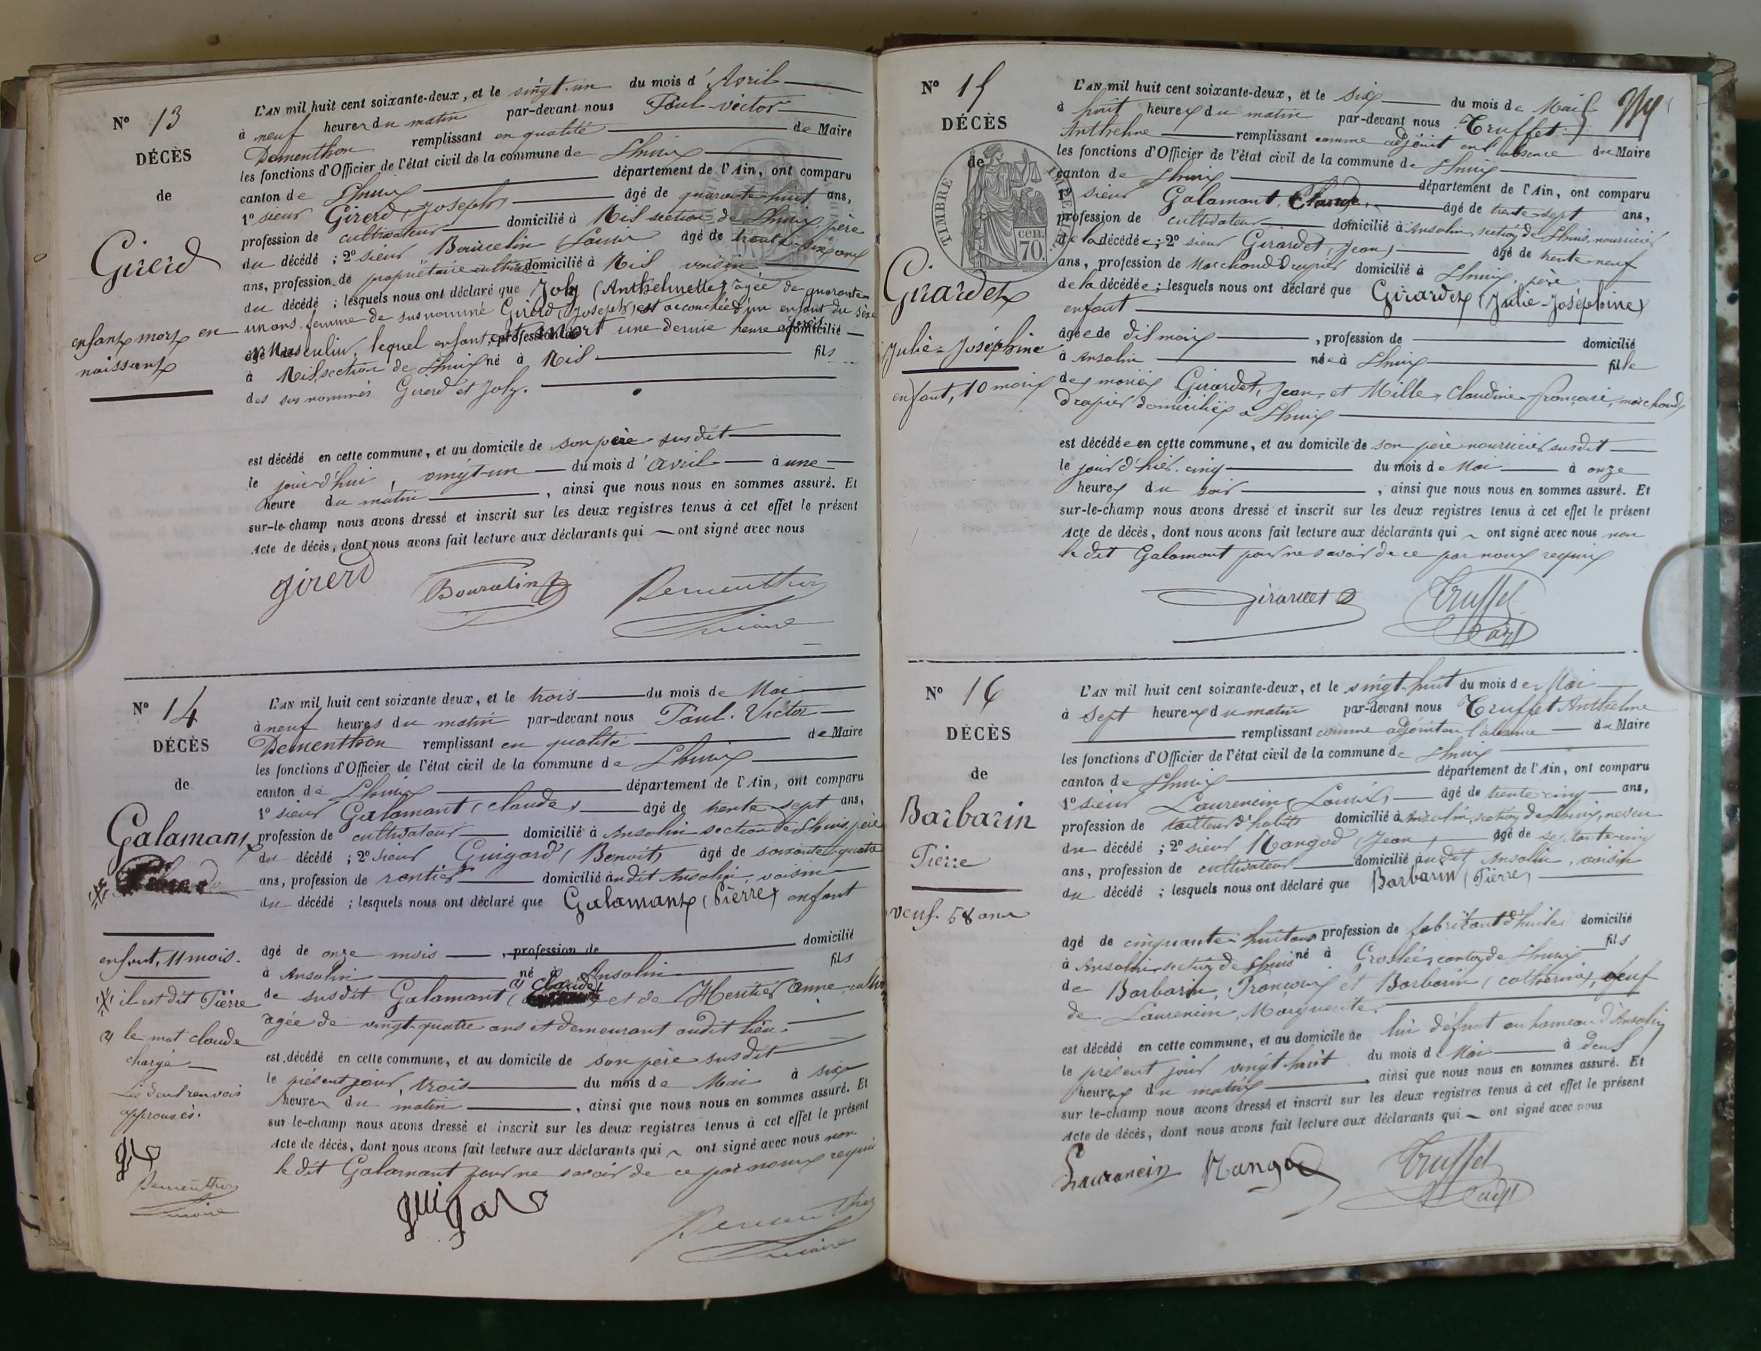 N° 13
DÉCÈS
de
Girerd
enfant mort en
naissant
L'AN mil huit cent soixante-deux, et le vingt-un du mois d'Avril
à neuf heures du matin par-devant nous Paul-Victor
Dementhon remplissant en qualité de Maire
les fonctions d'Officier de l'état civil de la commune de Lhuis
canton de Lhuis département de l'Ain, ont comparu
1° sieur Girerd (Joseph) âgé de quarante-huit ans,
profession de cultivateur domicilié à Rix section de Lhuis père
du décédé ; 2° sieur Bourcelin (Louis) âgé de trente-six ans
ans, profession de propriétaire cultivateur domicilié à voisin
du décédé ; lesquels nous ont déclaré que Joly (Anthelmette) âgée de quarante
un ans femme de sus nommé Girerd (Joseph) est accouchée d'un enfant du sexe
masculin, lequel enfant est mort une demie heure après
à section de Lhuis né à fils
des sus nommés Girerd et Joly.
est décédé en cette commune, et au domicile de son père susdit
le jour d'hui, vingt-un du mois d'avril à une
heure du matin , ainsi que nous nous en sommes assuré. Et
sur-le-champ nous avons dressé et inscrit sur les deux registres tenus à cet effet le présent
Acte de décès, dont nous avons fait lecture aux déclarants qui ont signé avec nous
Girerd Bourcelin Dementhon
maire
N° 14
DÉCÈS
de
Galamant
enfant, 11 mois.
il est dit Pierre
le mot claude
chargé
Les deux renvois
approuvés.
Dementhon
maire
L'AN mil huit cent soixante deux, et le trois du mois de Mai
à neuf heures du matin par-devant nous Paul-Victor
Dementhon remplissant en qualité de Maire
les fonctions d'Officier de l'état civil de la commune de Lhuis
canton de Lhuis département de l'Ain, ont comparu
1° sieur Galamant (claude) âgé de trente sept ans,
profession de cultivateur domicilié à Ansolin section de Lhuis, père
du décédé ; 2° sieur Guigard (Benoit) âgé de soixante-quatre
ans, profession de rentier domicilié audit Ansolin, voisin
du décédé ; lesquels nous ont déclaré que Galamant (Pierre) enfant
âgé de onze mois , profession de domicilié
à Ansolin né à Ansolin fils
de susdit Galamant (Claude) et de Heritier Anne,
agée de vingt-quatre ans et demeurant audit lieu.
est décédé en cette commune, et au domicile de son père susdit
le présent jour, trois du mois de Mai à six
heures du matin , ainsi que nous nous en sommes assuré. Et
sur le-champ nous avons dressé et inscrit sur les deux registres tenus à cet effet le présent
Acte de décès, dont nous avons fait lecture aux déclarants qui ont signé avec nous non
le dit Galamant pour ne savoir de ce par nous requis
guigard
Dementhon
maire
N° 15
DÉCÈS
de
TIMBRE
70 cen.
Girardet
Julie-Joséphine
enfant, 10 mois
L'AN mil huit cent soixante-deux, et le six du mois de Mai
à huit heures du matin par-devant nous Truffet
Anthelme remplissant comme adjoint en l'absence du Maire
les fonctions d'Officier de l'état civil de la commune de Lhuis
canton de Lhuis département de l'Ain, ont comparu
sieur Galamant, Claude, âgé de trente-sept ans,
profession de cultivateur domicilié à Ansolin, section de Lhuis, nourricier
de la décédée ; 2° sieur Girardet (Jean) âgé de trente-neuf
ans, profession de Marchand Drapier domicilié à Lhuis, père
de la décédée ; lesquels nous ont déclaré que Girardet (Julie-Joséphine)
enfant
âgée de dix mois , profession de domicilié
à Ansolin née à Lhuis fille
des mariés Girardet, Jean, et Mille, Claudine-françoise, marchands
drapiers domiciliés à Lhuis
est décédée en cette commune, et au domicile de son père nourricier susdit
le jour d'hier cinq du mois de Mai à onze
heures du soir , ainsi que nous nous en sommes assuré. Et
sur-le-champ nous avons dressé et inscrit sur les deux registres tenus à cet effet le présent
Acte de décès, dont nous avons fait lecture aux déclarants qui ont signé avec nous non
le dit Galamant pour ne savoir de ce par nous requis
girardet Truffet
adjt
N° 16
DÉCÈS
de
Barbarin
Pierre
veuf. 58 ans
L'AN mil huit cent soixante-deux, et le vingt-huit du mois de Mai
à sept heures du matin par-devant nous Truffet Anthelme
remplissant comme adjoint en l'absence du Maire
les fonctions d'Officier de l'état civil de la commune de Lhuis
canton de Lhuis département de l'Ain, ont comparu
1° sieur Laurencin (Louis) âgé de trente cinq ans,
profession de tailleur d'habits domicilié à Ansolin, section de Lhuis, neveu
du décédé ; 2° sieur Mangod (Jean) âgé de
ans, profession de cultivateur domicilié audit Ansolin, voisin
du décédé ; lesquels nous ont déclaré que Barbarin (Pierre)
âgé de cinquante-huit ans profession de fabricant d'huile domicilié
à Ansolin section de Lhuis né à Groslée, canton de Lhuis fils
de Barbarin, François et Barbarin (catherine), veuf
de Laurencin, Marguerite.
est décédé en cette commune, et au domicile de lui défunt au hameau d'Ansolin
le présent jour vingt-huit du mois de Mai à deux
heures du matin , ainsi que nous nous en sommes assuré. Et
sur le-champ nous avons dressé et inscrit sur les deux registres tenus à cet effet le présent
Acte de décès, dont nous avons fait lecture aux déclarants qui ont signé avec nous
Laurencin Mangod Truffet
adjt